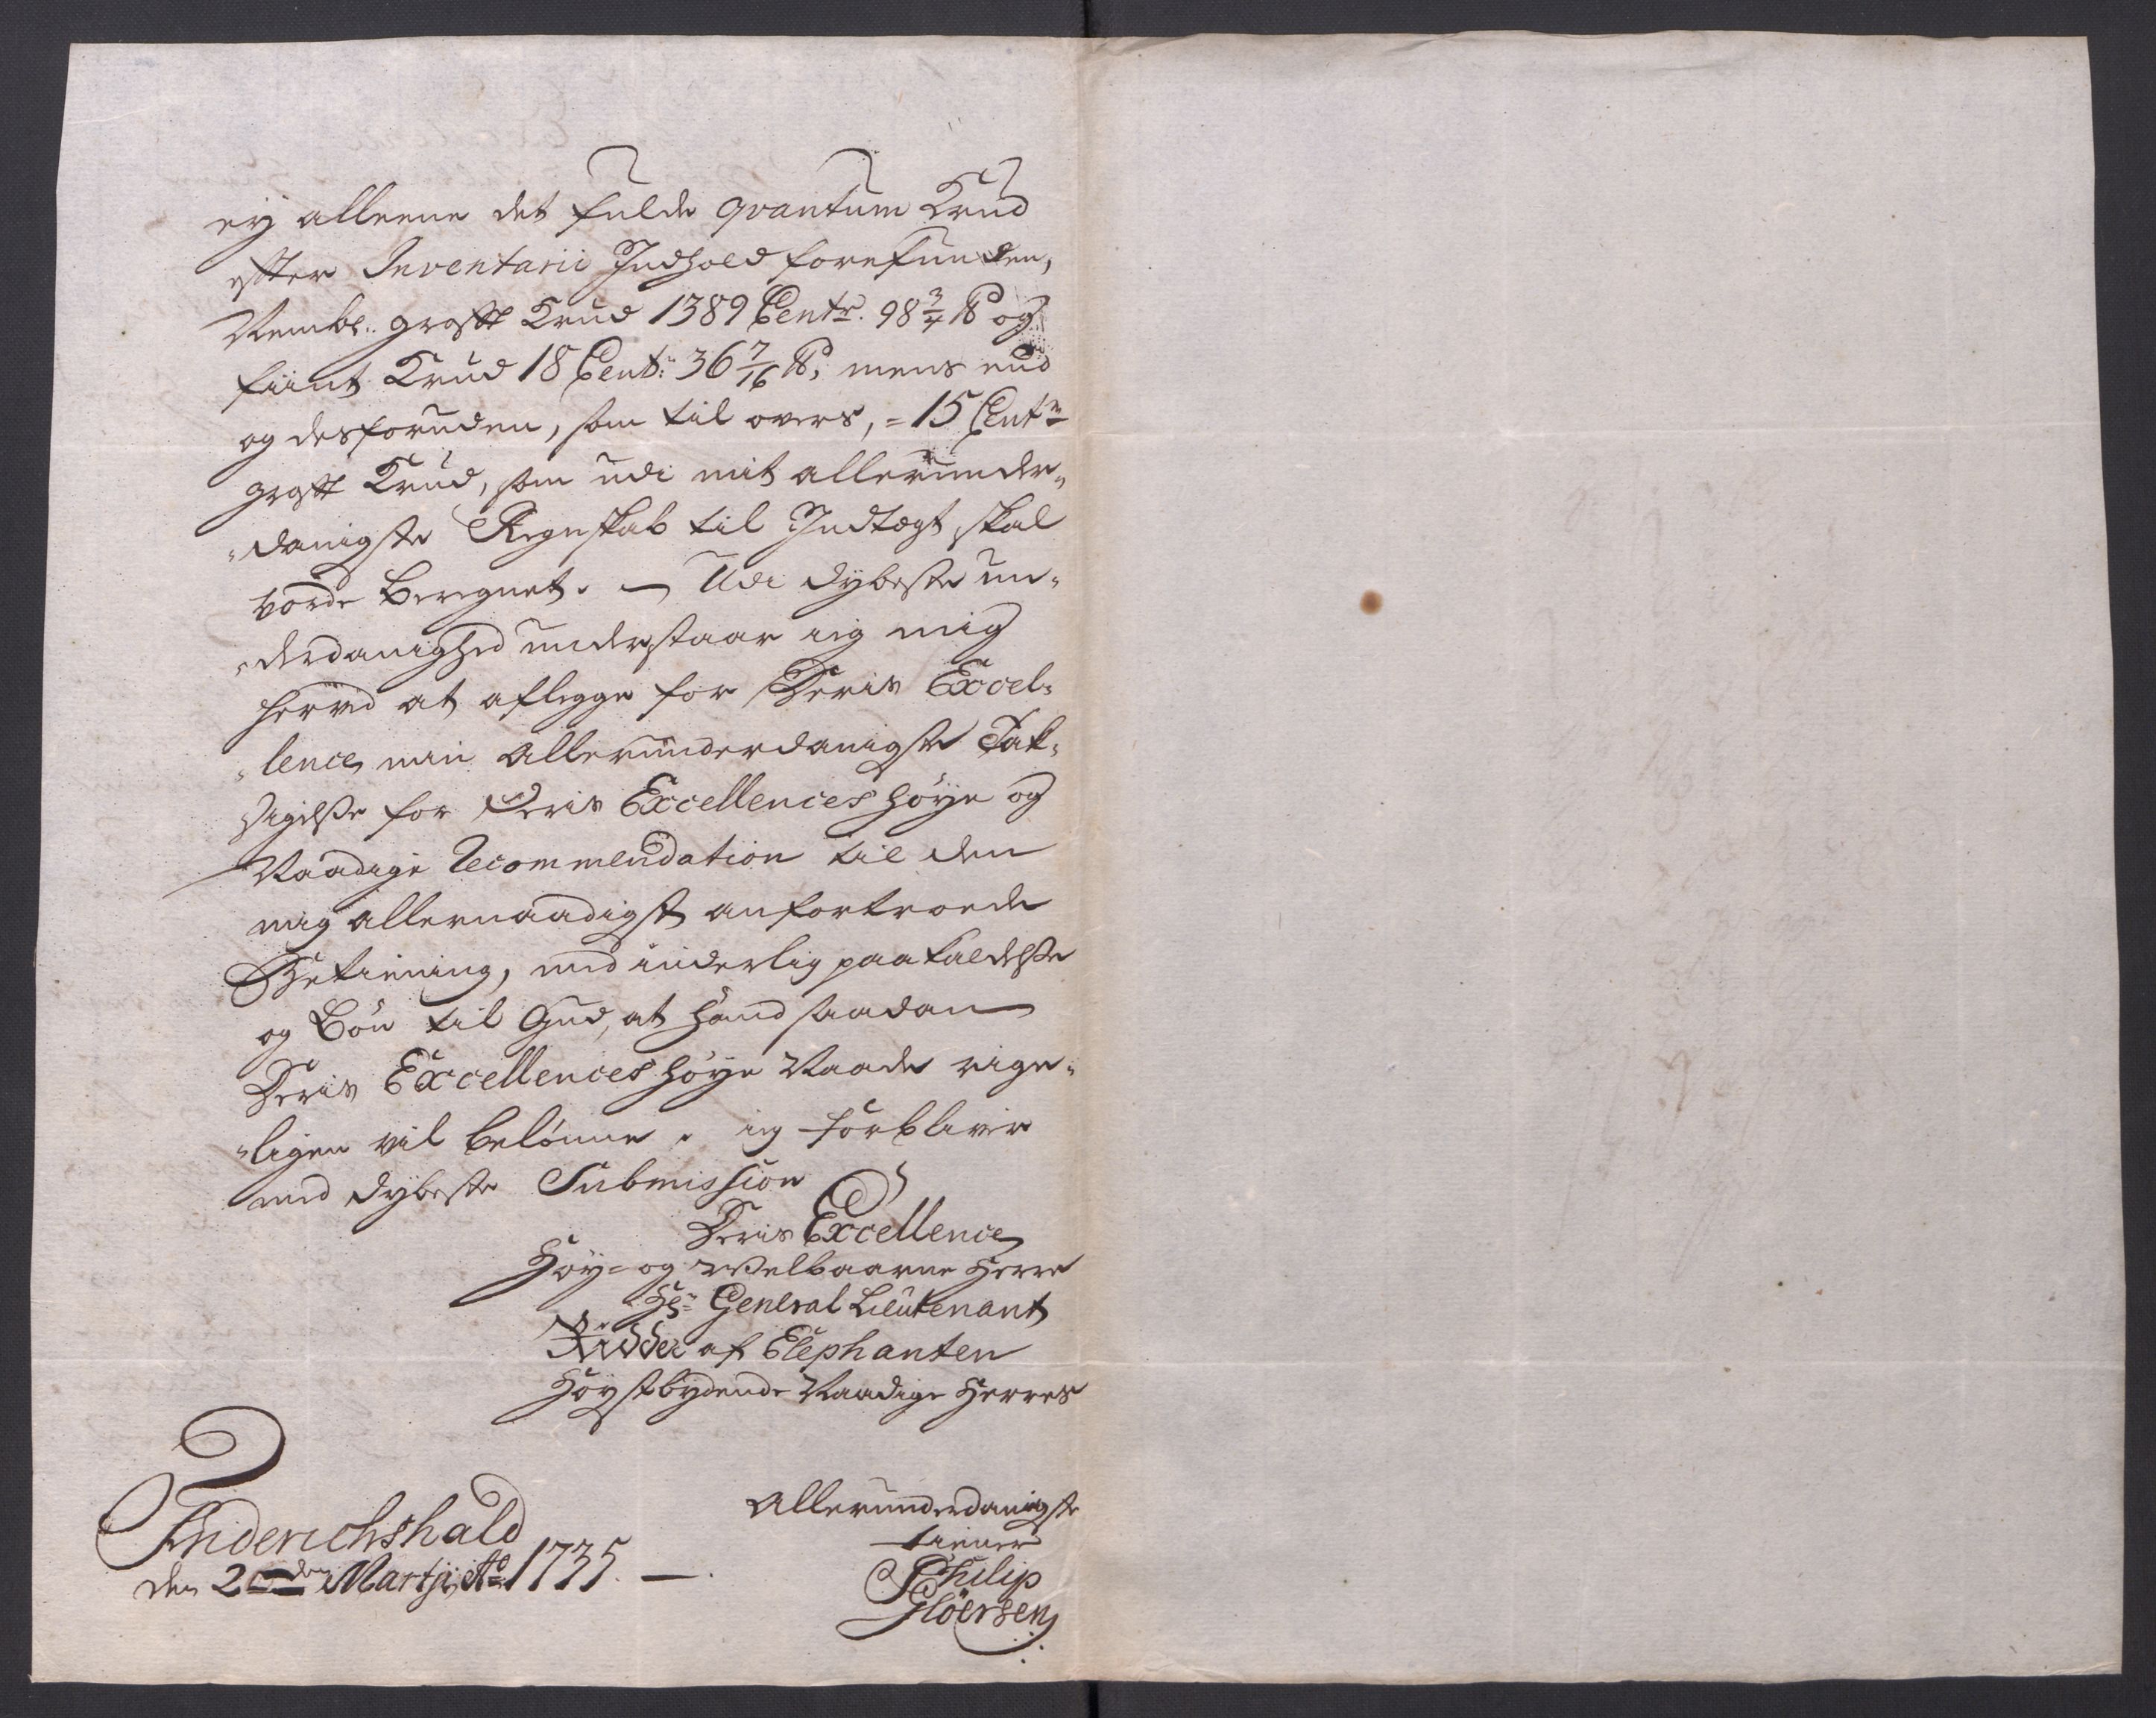 ey alleene det fulde qvantum Krud
efter Inventarii Indhold forefunden,
Nembl: groft Krud 1389 Centr. 98 3/4 ℔ og
fiint Krud 18 Cent: 36 7/16 ℔, mens end
og desforuden, som til overs, = 15 Centr
groft Krud, som udi mit allerunder„
„danigste Regnskab til Indtegt skal
vorde beregnet. — Udi dybeste un„
„derdanighed understaar ieg mig
herved at aflegge for Deris Excel„
„lence min allerunderdanigste Tak„
sigelse for Deris Excellences høye og
Naadige Recommendation til den
mig allernaadigst anfortroede
Betiening, med inderlig paakaldelse
og Bøn til Gud, at Hand saadan
Deris Excellences høye Naade rige„
„ligen vil belønne. ieg forbliver
med dybeste Submission
Deris Excellence
Høy- og Welbaarne Herre
Hr: General Lieutenant
Ridder af Elephanten
Høystbydende Naadige Herres
Allerunderdanigste
tiener
Philip
Gløersen
Friderichshald
den 20den Martji Ao 1735. —.